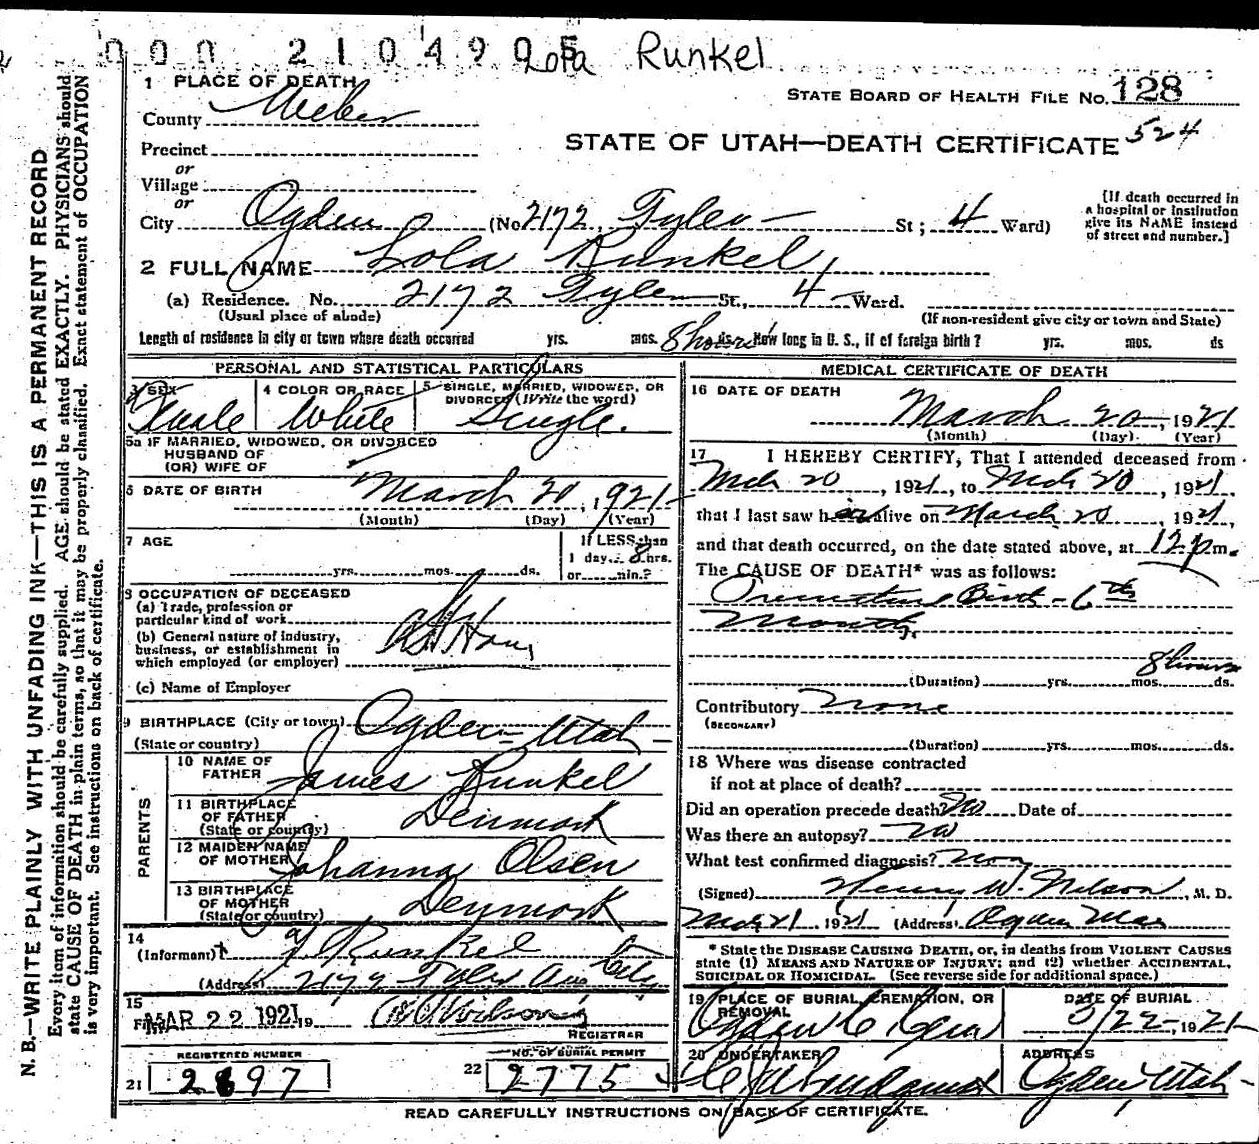 000 2104905
Lola Runkel
1 PLACE OF DEATH
STATE BOARD OF HEALTH FILE No. 128
County Weber
STATE OF UTAH—DEATH CERTIFICATE 524
Precinct
or
Village
or
City Ogden (No 2172 Tyler St; 4 Ward)
[If death occurred in a hospital or institution give its NAME instead of street and number.]
2 FULL NAME Lola Runkel
(a) Residence. No. 2172 Tyler St., 4 Ward.
(Usual place of abode) (If non-resident give city or town and State)
Length of residence in city or town where death occurred yrs. mos. 8 hours ds. How long in U. S., if of foreign birth? yrs. mos. ds
PERSONAL AND STATISTICAL PARTICULARS
3 SEX
4 COLOR OR RACE White
5 SINGLE, MARRIED, WIDOWED, OR
DIVORCED (Write the word)
Single.
5a IF MARRIED, WIDOWED, OR DIVORCED
HUSBAND OF
(OR) WIFE OF
6 DATE OF BIRTH March 20, 1921
(Month) (Day) (Year)
7 AGE
yrs. mos. ds.
If LESS than
1 day 8 hrs.
or min.?
8 OCCUPATION OF DECEASED
(a) Trade, profession or
particular kind of work
At Home
(b) General nature of industry,
business, or establishment in
which employed (or employer)
(c) Name of Employer
9 BIRTHPLACE (City or town) Ogden Utah
(State or country)
PARENTS
10 NAME OF
FATHER James Runkel
11 BIRTHPLACE
OF FATHER Denmark
(State or country)
12 MAIDEN NAME
OF MOTHER Johanna Olsen
13 BIRTHPLACE
OF MOTHER Denmark
(State or country)
14
(Informant) J Runkel
(Address) 2172 Tyler Ave City
15
Filed MAR 22 1921 19
REGISTRAR
REGISTERED NUMBER
21 2897
NO. OF BURIAL PERMIT
22 2775
MEDICAL CERTIFICATE OF DEATH
16 DATE OF DEATH
March 20, 1921
(Month) (Day) (Year)
17 I HEREBY CERTIFY, That I attended deceased from
Mch 20, 1921, to Mch 20, 1921
that I last saw her alive on March 20, 1921,
and that death occurred, on the date stated above, at 12 p m.
The CAUSE OF DEATH* was as follows:
Premature Birth - 6th
Month.
8 hours
(Duration) yrs. mos. ds.
Contributory None
(SECONDARY)
(Duration) yrs. mos. ds.
18 Where was disease contracted
if not at place of death?
Did an operation precede death? No Date of
Was there an autopsy? No
What test confirmed diagnosis? None
(Signed) Henry W. Nelson, M. D.
Mar 21, 1921 (Address) Ogden
* State the DISEASE CAUSING DEATH, or, in deaths from VIOLENT CAUSES
state (1) MEANS AND NATURE OF INJURY; and (2) whether ACCIDENTAL,
SUICIDAL OR HOMICIDAL. (See reverse side for additional space.)
19 PLACE OF BURIAL, CREMATION, OR
REMOVAL
Ogden City Cem
DATE OF BURIAL
3/22, 1921
20 UNDERTAKER
ADDRESS
Ogden, Utah
READ CAREFULLY INSTRUCTIONS ON BACK OF CERTIFICATE.
N. B.—WRITE PLAINLY WITH UNFADING INK—THIS IS A PERMANENT RECORD
Every item of information should be carefully supplied. AGE should be stated EXACTLY. PHYSICIANS should
state CAUSE OF DEATH in plain terms, so that it may be properly classified. Exact statement of OCCUPATION
is very important. See instructions on back of certificate.